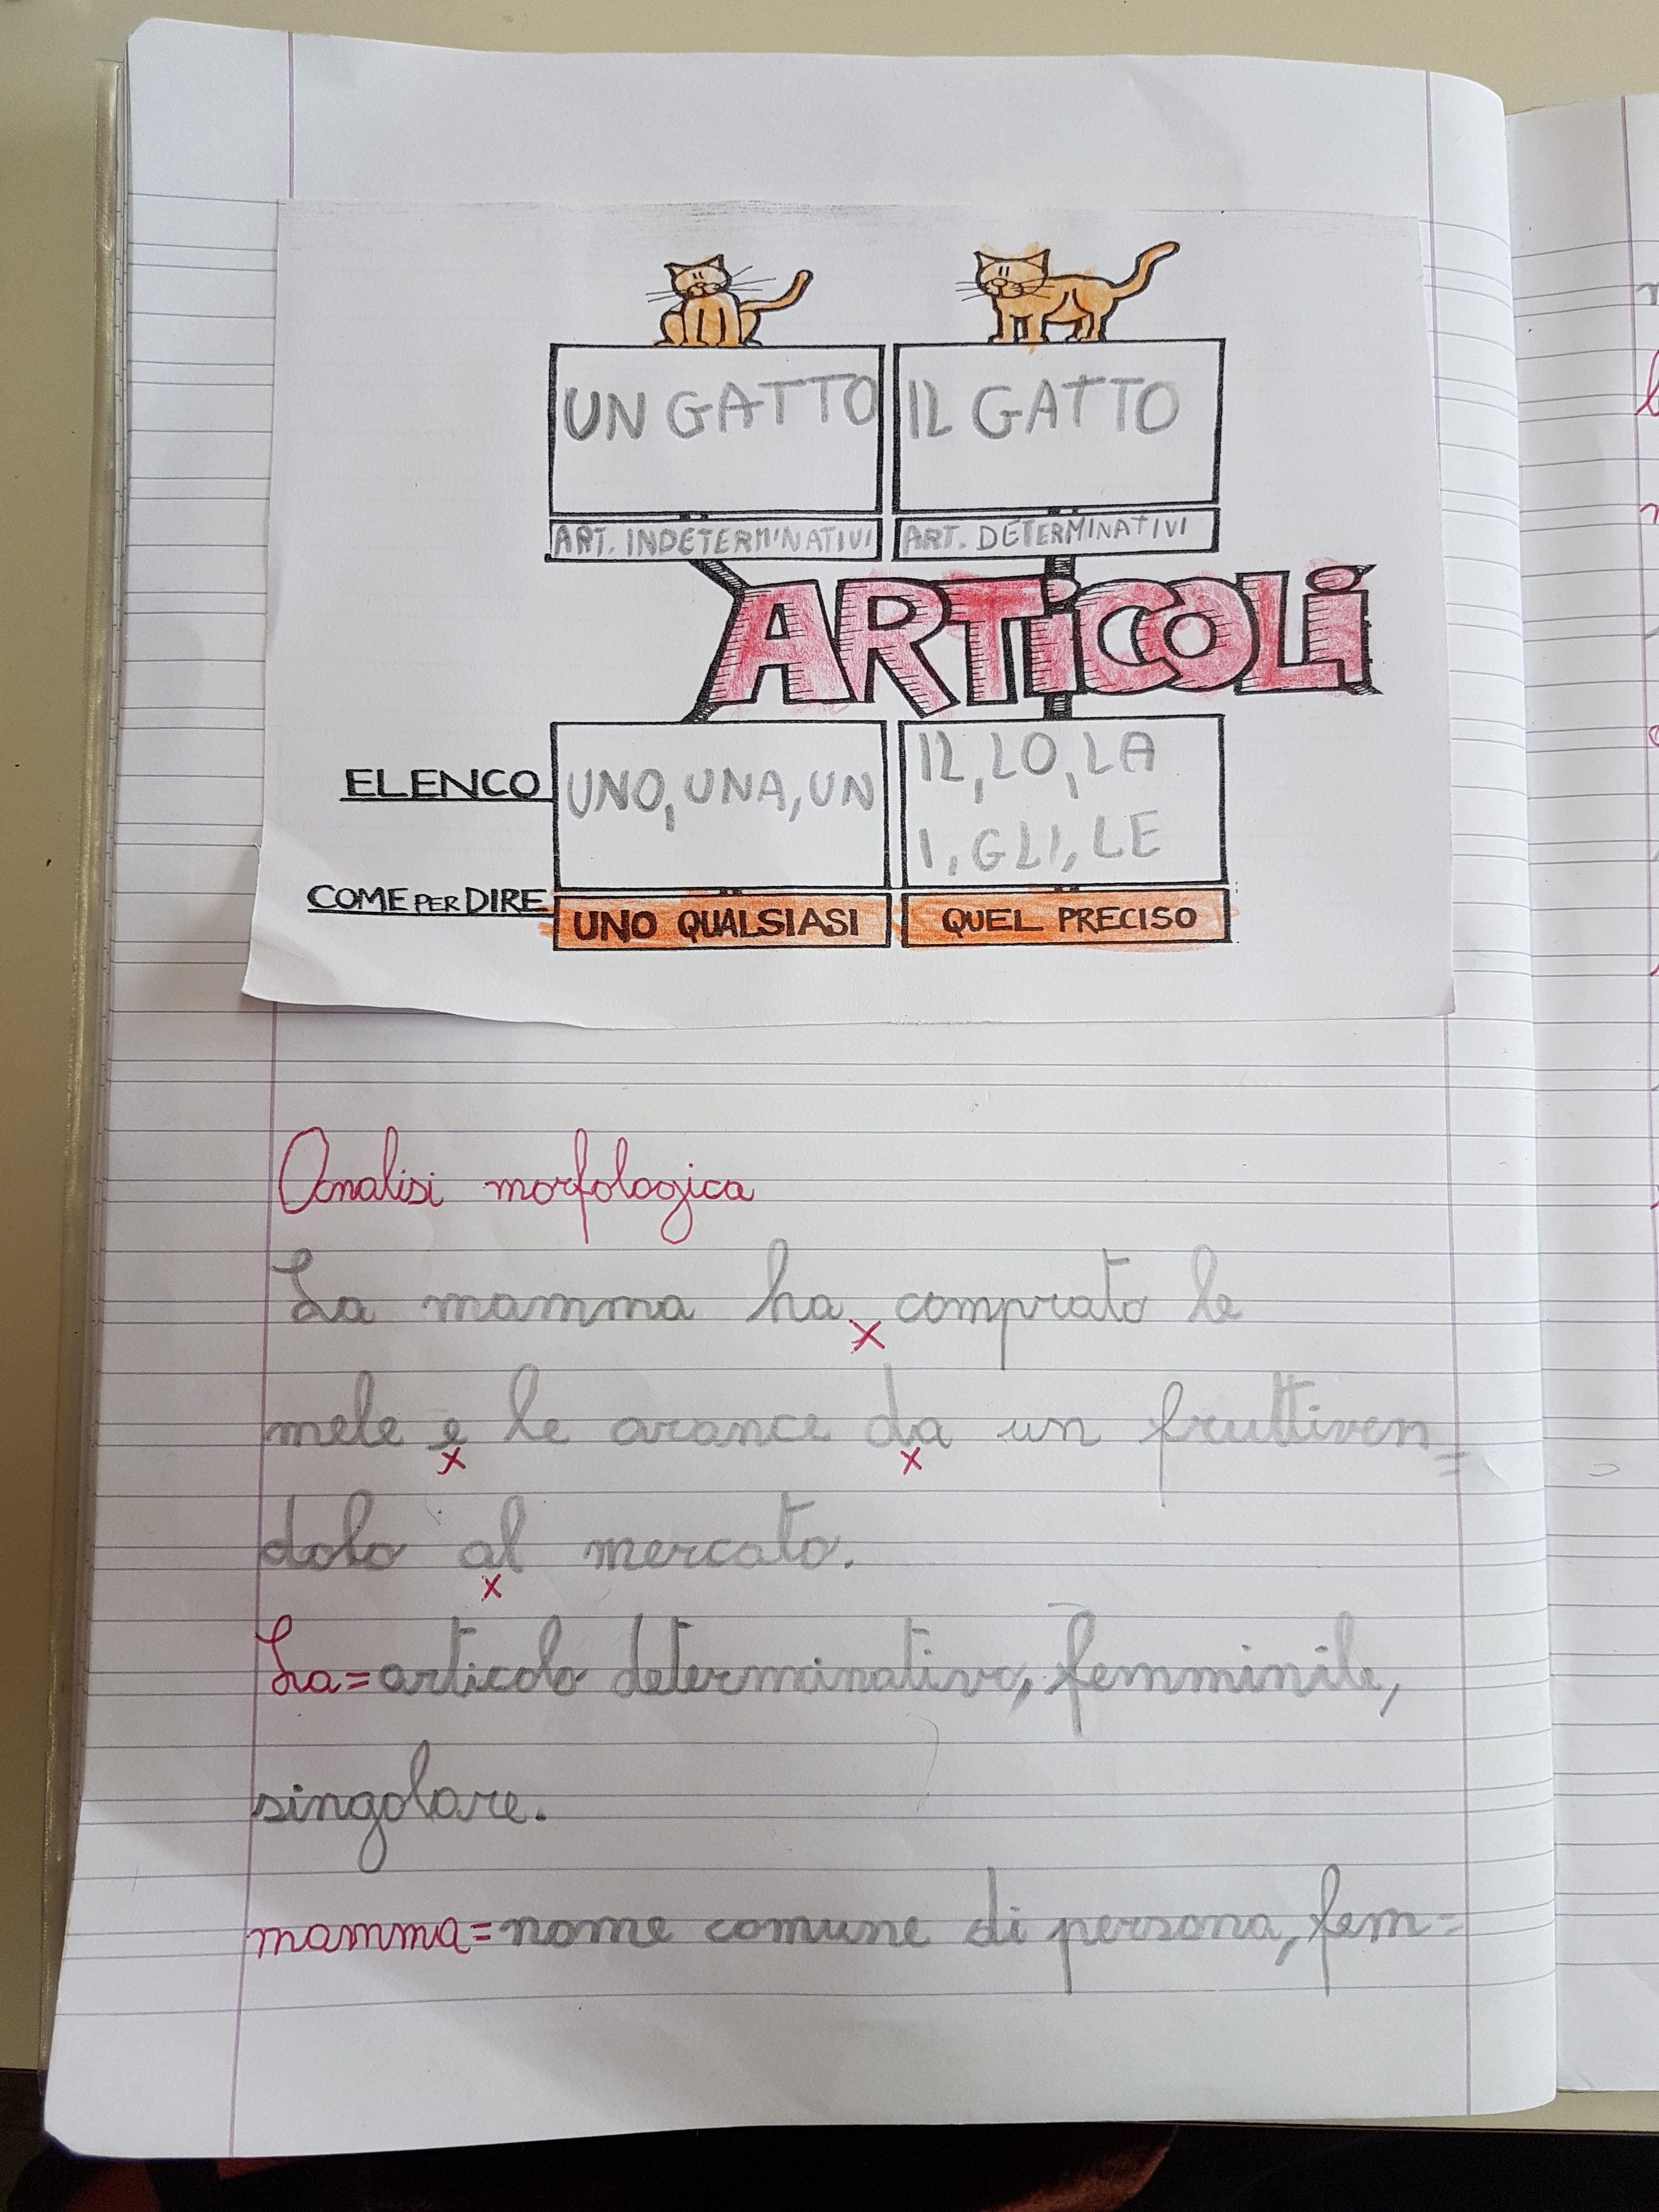 UN GATTO IL GATTO
ART. INDETERMINATIVI ART. DETERMINATIVI
ARTiCOLi
ELENCO UNO, UNA, UN IL, LO, LA
I, GLI, LE
COME PER DIRE UNO QUALSIASI QUEL PRECISO
Analisi morfologica
La mamma ha comprato le
x
mele e le arance da un fruttiven=
x x
dolo al mercato.
x
La= articolo determinativo, femminile,
singolare.
mamma= nome comune di persona, fem=